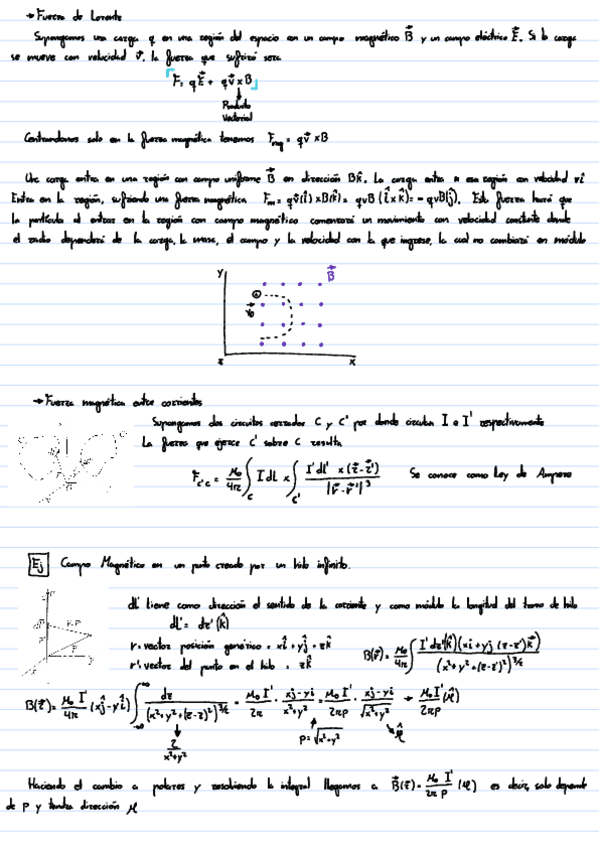 → Fuerza de Lorentz
Supongamos una carga q en una región del espacio en un campo magnético B⃗ y un campo eléctrico E⃗. Si la carga
se mueve con velocidad v⃗, la fuerza que sufrirá será
F = qE⃗ + qv⃗ x B
Producto
Vectorial
Centrandonos solo en la fuerza magnética tenemos F_mag = qv⃗ x B
Una carga entra en una región con campo uniforme B⃗ en dirección Bk̂. La carga entra a esa región con velocidad vî
Entra en la región, sufriendo una fuerza magnética F_m = qv(î) x B(k̂) = qvB (î x k̂) = - qvB(ĵ). Esta fuerza hará que
la partícula al entrar en la región con campo magnético comenzará un movimiento con velocidad constante donde
el radio dependerá de la carga, la masa, el campo y la velocidad con la que ingrese, la cual no cambiará en módulo
y
B⃗
v⃗
z
x
→ Fuerza magnética entre corrientes
Supongamos dos circuitos cerrados C y C' por donde circulan I e I' respectivamente
La fuerza que ejerce C' sobre C resulta
F_c'c = μ₀/4π ∫_C I dL x ∫_C' I'dL' x (r⃗ - r⃗')/|r⃗ - r⃗'|³ Se conoce como Ley de Ampere
Ej Campo Magnético en un punto creado por un hilo infinito.
dl' tiene como dirección el sentido de la corriente y como módulo la longitud del tramo de hilo
dl' = dz'(k̂)
r = vector posición genérico = xî + yĵ + zk̂
r' = vector del punto en el hilo = zk̂
B(r⃗) = μ₀/4π ∫ I'dz'(k̂)(xi + yj (z - z')k̂)/(x² + y² + (z - z')²)^3/2
B(r⃗) = μ₀ I'/4π (xĵ - yî) ∫_-∞^∞ dz/(x² + y² + (z - z')²)^3/2 = μ₀ I'/2π · xj - yi/x² + y² = μ₀ I'/2πρ · xj - yi/√x² + y² → μ₀ I'(φ̂)/2πρ
2/x² + y²
ρ = √x² + y²
φ̂
Haciendo el cambio a polares y resolviendo la integral llegamos a B⃗(r⃗) = μ₀ I'/2π ρ (φ) es decir, solo depende
de ρ y tendrá dirección φ